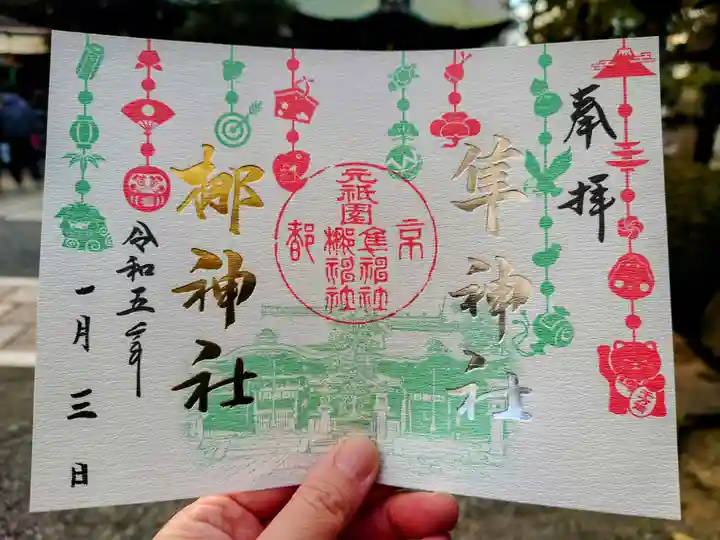 奉拝
隼神社
元祇園
京都
隼神社
梛神社
梛神社
令和五年
一月三日